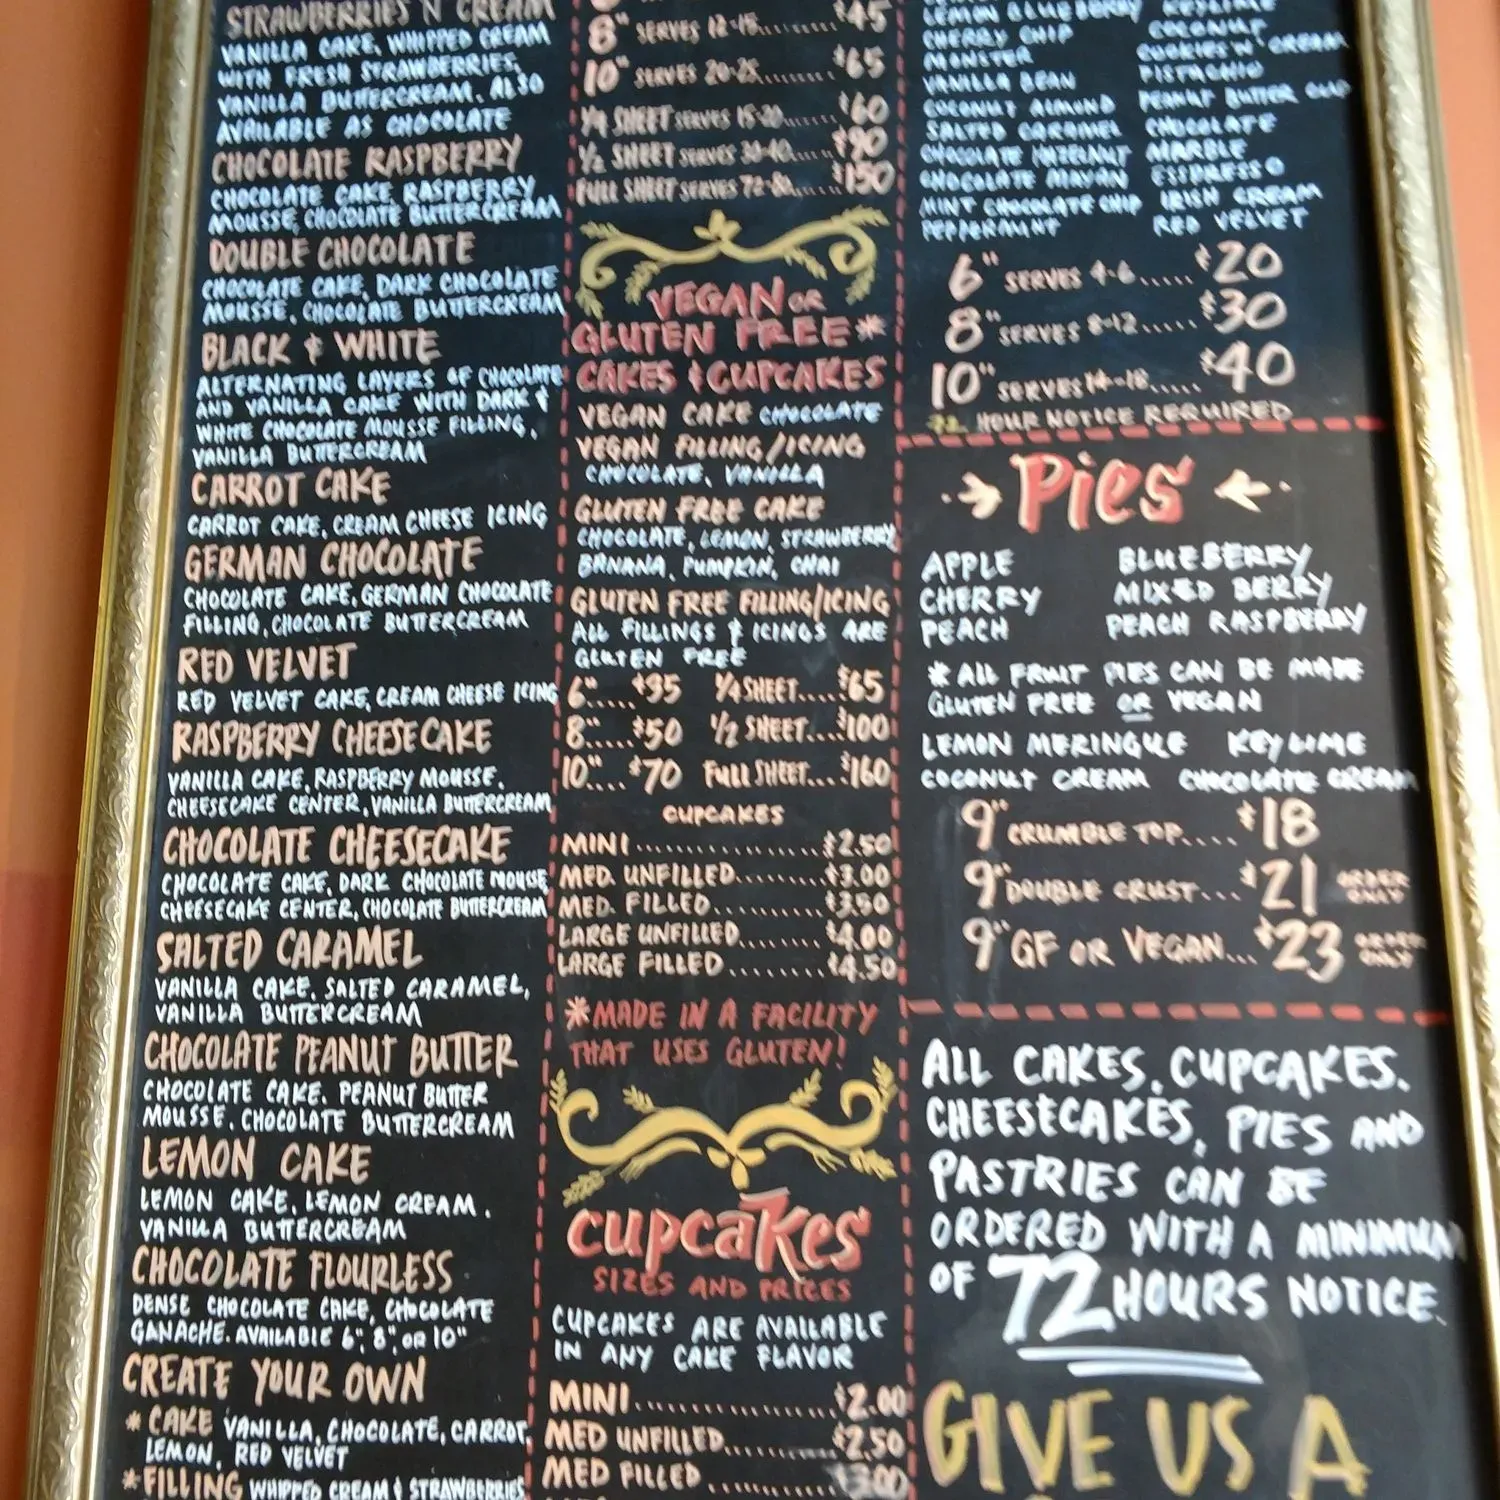 STRAWBERRIES N CREAM
VANILLA CAKE, WHIPPED CREAM
WITH FRESH STRAWBERRIES,
VANILLA BUTTERCREAM. ALSO
AVAILABLE AS CHOCOLATE
CHOCOLATE RASPBERRY
CHOCOLATE CAKE, RASPBERRY
MOUSSE, CHOCOLATE BUTTERCREAM
DOUBLE CHOCOLATE
CHOCOLATE CAKE, DARK CHOCOLATE
MOUSSE, CHOCOLATE BUTTERCREAM
BLACK & WHITE
ALTERNATING LAYERS OF CHOCOLATE
AND VANILLA CAKE WITH DARK &
WHITE CHOCOLATE MOUSSE FILLING,
VANILLA BUTTERCREAM
CARROT CAKE
CARROT CAKE, CREAM CHEESE ICING
GERMAN CHOCOLATE
CHOCOLATE CAKE, GERMAN CHOCOLATE
FILLING, CHOCOLATE BUTTERCREAM
RED VELVET
RED VELVET CAKE, CREAM CHEESE ICING
RASPBERRY CHEESECAKE
VANILLA CAKE, RASPBERRY MOUSSE.
CHEESECAKE CENTER, VANILLA BUTTERCREAM
CHOCOLATE CHEESECAKE
CHOCOLATE CAKE, DARK CHOCOLATE MOUSSE,
CHEESECAKE CENTER, CHOCOLATE BUTTERCREAM
SALTED CARAMEL
VANILLA CAKE. SALTED CARAMEL,
VANILLA BUTTERCREAM
CHOCOLATE PEANUT BUTTER
CHOCOLATE CAKE. PEANUT BUTTER
MOUSSE. CHOCOLATE BUTTERCREAM
LEMON CAKE
LEMON CAKE, LEMON CREAM.
VANILLA BUTTERCREAM
CHOCOLATE FLOURLESS
DENSE CHOCOLATE CAKE, CHOCOLATE
GANACHE. AVAILABLE 6", 8", OR 10"
CREATE YOUR OWN
*CAKE VANILLA, CHOCOLATE, CARROT,
LEMON, RED VELVET
*FILLING WHIPPED CREAM & STRAWBERRIES
8" SERVES 12-15......... $45
10" SERVES 20-25........ $65
1/4 SHEET SERVES 15-20...... $60
1/2 SHEET SERVES 30-40...... $90
FULL SHEET SERVES 72-80..... $150
VEGAN OR
GLUTEN FREE*
CAKES & CUPCAKES
VEGAN CAKE CHOCOLATE
VEGAN FILLING/ICING
CHOCOLATE, VANILLA
GLUTEN FREE CAKE
CHOCOLATE, LEMON, STRAWBERRY
BANANA, PUMPKIN, CHAI
GLUTEN FREE FILLING/ICING
ALL FILLINGS & ICINGS ARE
GLUTEN FREE
6"..... $35 1/4 SHEET.... $65
8"..... $50 1/2 SHEET.... $100
10".... $70 FULL SHEET.... $160
CUPCAKES
MINI.................. $2.50
MED. UNFILLED......... $3.00
MED. FILLED........... $3.50
LARGE UNFILLED........ $4.00
LARGE FILLED......... $4.50
*MADE IN A FACILITY
THAT USES GLUTEN!
CUPCAKES
SIZES AND PRICES
CUPCAKES ARE AVAILABLE
IN ANY CAKE FLAVOR
MINI.................. $2.00
MED UNFILLED.......... $2.50
MED FILLED........... $3.00
LEMON BLUEBERRY KEYLIME
CHERRY CHIP COCONUT
MONSTER COOKIES 'N' CREAM
VANILLA BEAN PISTACHIO
COCONUT ALMOND PEANUT BUTTER CUP
SALTED CARAMEL CHOCOLATE
CHOCOLATE HAZELNUT MARBLE
CHOCOLATE MAYAN ESPRESSO
MINT CHOCOLATE CHIP IRISH CREAM
PEPPERMINT RED VELVET
6" SERVES 4-6..... $20
8" SERVES 8-12..... $30
10" SERVES 14-18..... $40
72 HOUR NOTICE REQUIRED
Pies
APPLE BLUEBERRY
CHERRY MIXED BERRY
PEACH PEACH RASPBERRY
*ALL FRUIT PIES CAN BE MADE
GLUTEN FREE OR VEGAN
LEMON MERINGUE KEY LIME
COCONUT CREAM CHOCOLATE CREAM
9" CRUMBLE TOP.... $18
9" DOUBLE CRUST... $21 ORDER ONLY
9" GF OR VEGAN... $23 ORDER ONLY
ALL CAKES, CUPCAKES.
CHEESECAKES, PIES AND
PASTRIES CAN BE
ORDERED WITH A MINIMUM
OF 72 HOURS NOTICE.
GIVE US A